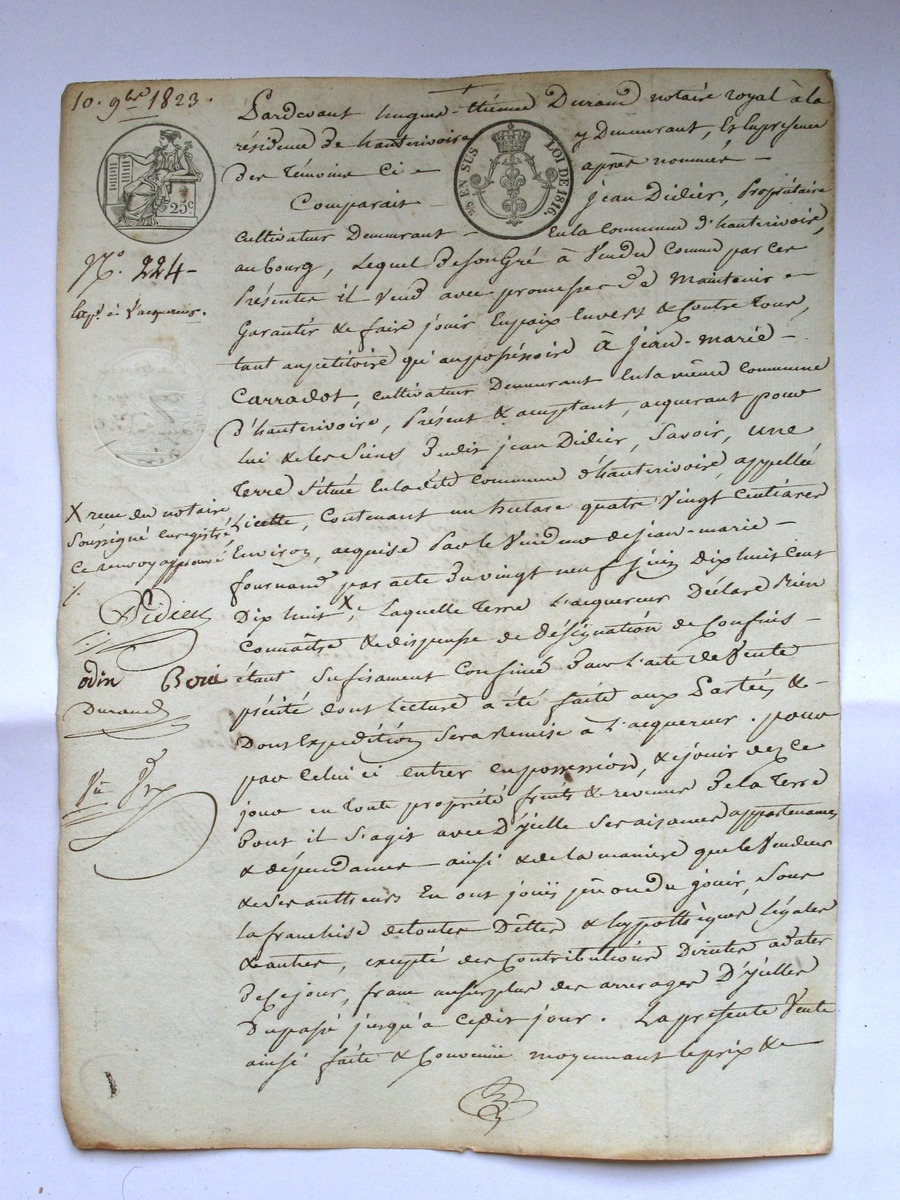 10. 9bre 1823.
Pardevant hugue-thième Durand notaire royal à la
résidence de hauterivoire y Demeurant, En la présence
Des témoins Ci- après nommés -
Comparait - jean Didier, Propriétaire
cultivateur Demeurant - En la Commune d'hauterivoire,
au bourg, Lequel De son Gré à Vendu Comme par Ces
Présentes il vend avec promesses De Maintenir
Garantir & faire jouir En paix Envers & Contre Tous,
tant au petitoire qu'au possessoire à jean-marie-
Carradot, cultivateur Demeurant En la même Commune
d'hauterivoire, Présent & acceptant, acquerant pour
lui & les Siens Dudit jean Didier, Savoir, une
Terre Située En la dite Commune d'hauterivoire, appellée
Licette, Contenant un hectare quatre Vingt Centiares
Environ, acquise Par le Vendeur de jean-marie-
fournand par acte Du vingt neuf juin Dix huit Cent
Dix huit X, Laquelle Terre L'acquereur Déclare bien
Connaître & dispense de Désignation de Confins -
étant Sufisament Confinée Dans L'acte De Vente
précité dont lecture a été faite aux Parties & -
Dont Expédition Sera Remise à L'acquereur. pour
par Celui ci entrer en possession, & jouir dez Ce
jour en toute propriété fruits & revenus De la Terre
Dont il S'agit avec D'ycelle Ses aisances appartenances
& dépendances ainsi & de la maniere que le Vendeur
& Ses autheurs En ont jouï pû ou dû jouir, Sous
la franchise de toutes Dettes & hypothèques Légales
& autres, excepté des Contributions Directes à dater
De Ce jour, franc au surplus des arrerages D'ycelles
Du passé jusqu'à Cedit jour. La présente Vente
ainsi faite & Convenüe moyennant le prix de
25c
25 EN SUS
LOI DE 1816.
No. 224-
Exp. à l'acquereur.
X reçu du notaire
Soussigné enregistré
Ce renvoy approuvé
Didier
odin
Durand